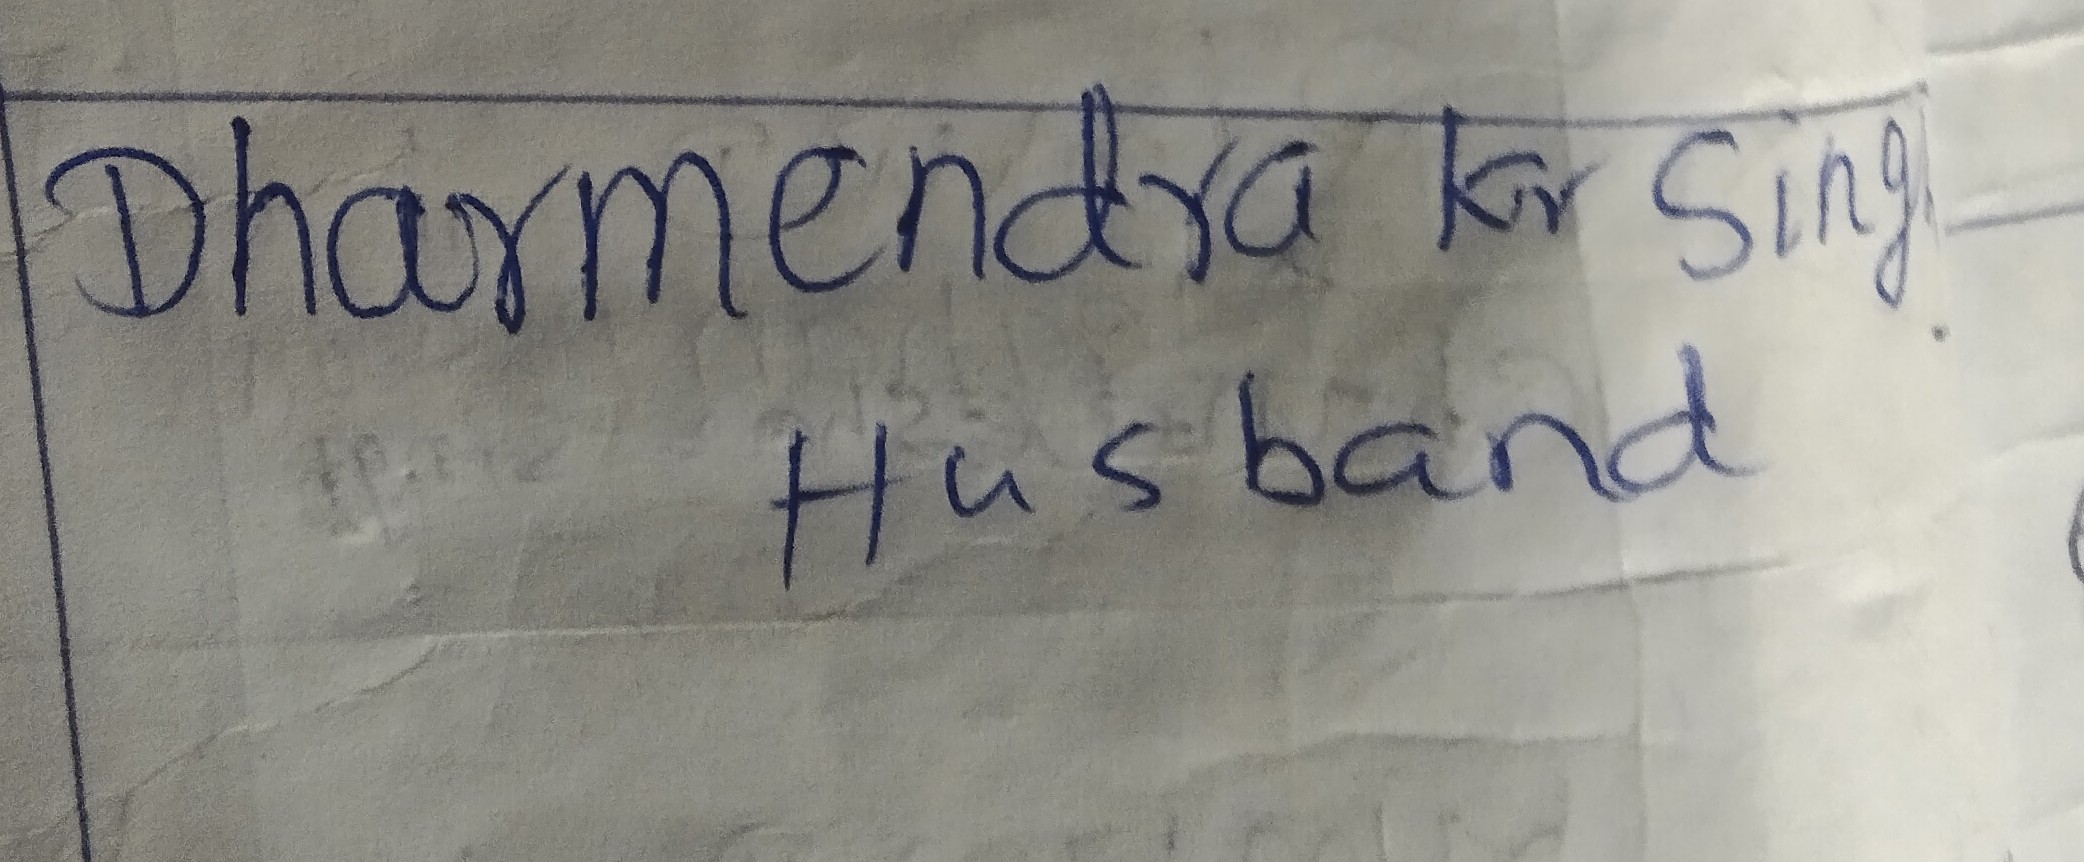 Dharmendra kr Sing
Husband